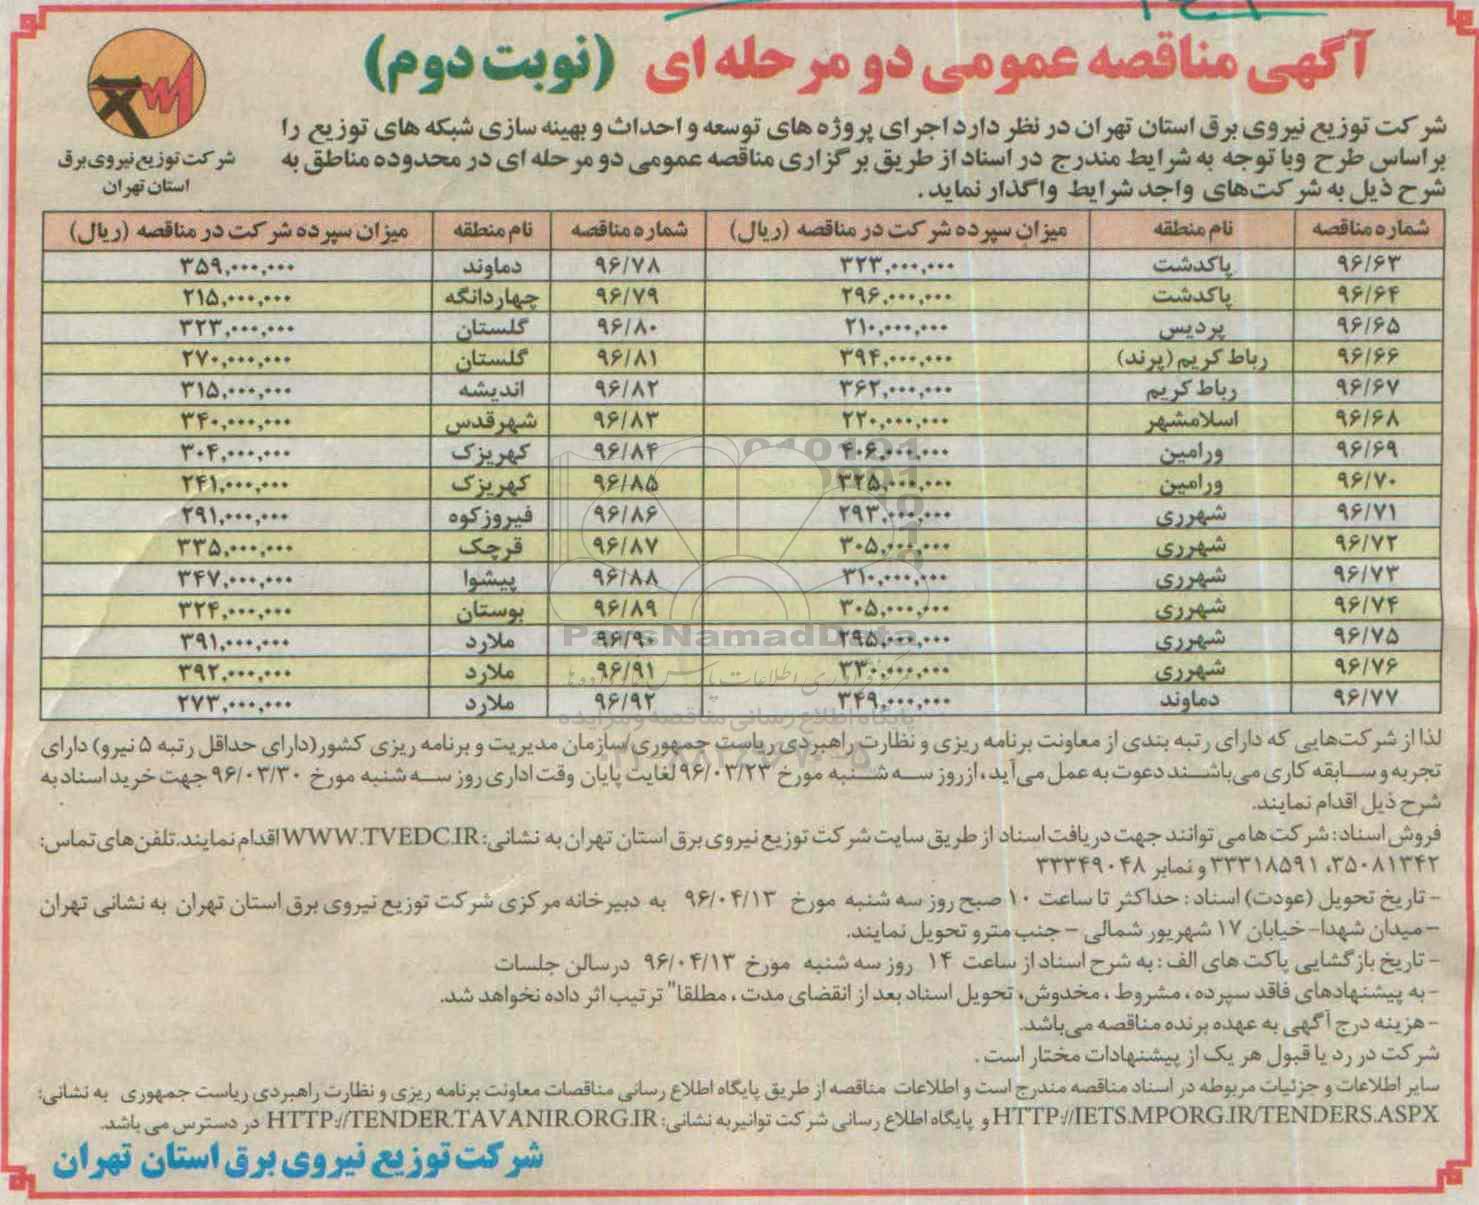 آگهی مناقصه عمومی دو مرحله ای (نوبت دوم)
شرکت توزیع نیروی برق
استان تهران
شرکت توزیع نیروی برق استان تهران در نظر دارد اجرای پروژه های توسعه و احداث و بهینه سازی شبکه های توزیع را
براساس طرح وبا توجه به شرایط مندرج در اسناد از طریق برگزاری مناقصه عمومی دو مرحله ای در محدوده مناطق به
شرح ذیل به شرکت‌های واجد شرایط واگذار نماید.
شماره مناقصه نام منطقه میزان سپرده شرکت در مناقصه (ریال) شماره مناقصه نام منطقه میزان سپرده شرکت در مناقصه (ریال)
۹۶/۶۳ پاکدشت ۳۲۳,۰۰۰,۰۰۰ ۹۶/۷۸ دماوند ۳۵۹,۰۰۰,۰۰۰
۹۶/۶۴ پاکدشت ۲۹۶,۰۰۰,۰۰۰ ۹۶/۷۹ چهاردانگه ۲۱۵,۰۰۰,۰۰۰
۹۶/۶۵ پردیس ۲۱۰,۰۰۰,۰۰۰ ۹۶/۸۰ گلستان ۳۲۳,۰۰۰,۰۰۰
۹۶/۶۶ رباط کریم (پرند) ۳۹۴,۰۰۰,۰۰۰ ۹۶/۸۱ گلستان ۲۷۰,۰۰۰,۰۰۰
۹۶/۶۷ رباط کریم ۳۶۲,۰۰۰,۰۰۰ ۹۶/۸۲ اندیشه ۳۱۵,۰۰۰,۰۰۰
۹۶/۶۸ اسلامشهر ۲۲۰,۰۰۰,۰۰۰ ۹۶/۸۳ شهرقدس ۳۴۰,۰۰۰,۰۰۰
۹۶/۶۹ ورامین ۴۰۶,۰۰۰,۰۰۰ ۹۶/۸۴ کهریزک ۳۰۴,۰۰۰,۰۰۰
۹۶/۷۰ ورامین ۳۲۵,۰۰۰,۰۰۰ ۹۶/۸۵ کهریزک ۲۴۱,۰۰۰,۰۰۰
۹۶/۷۱ شهرری ۲۹۳,۰۰۰,۰۰۰ ۹۶/۸۶ فیروزکوه ۲۹۱,۰۰۰,۰۰۰
۹۶/۷۲ شهرری ۳۰۵,۰۰۰,۰۰۰ ۹۶/۸۷ قرچک ۳۳۵,۰۰۰,۰۰۰
۹۶/۷۳ شهرری ۳۱۰,۰۰۰,۰۰۰ ۹۶/۸۸ پیشوا ۳۴۷,۰۰۰,۰۰۰
۹۶/۷۴ شهرری ۳۰۵,۰۰۰,۰۰۰ ۹۶/۸۹ بوستان ۳۲۴,۰۰۰,۰۰۰
۹۶/۷۵ شهرری ۲۹۵,۰۰۰,۰۰۰ ۹۶/۹۰ ملارد ۳۹۱,۰۰۰,۰۰۰
۹۶/۷۶ شهرری ۳۳۰,۰۰۰,۰۰۰ ۹۶/۹۱ ملارد ۳۹۲,۰۰۰,۰۰۰
۹۶/۷۷ دماوند ۳۴۹,۰۰۰,۰۰۰ ۹۶/۹۲ ملارد ۲۷۳,۰۰۰,۰۰۰
ParsNamadData
پایگاه اطلاع رسانی مناقصه و مزایده
لذا از شرکت‌هایی که دارای رتبه بندی از معاونت برنامه ریزی و نظارت راهبردی ریاست جمهوری/سازمان مدیریت و برنامه ریزی کشور(دارای حداقل رتبه ۵ نیرو) دارای
تجربه و سابقه کاری می‌باشند دعوت به عمل می‌آید ، ازروز سه شنبه مورخ ۹۶/۰۳/۲۳ لغایت پایان وقت اداری روز سه شنبه مورخ ۹۶/۰۳/۳۰ جهت خرید اسناد به
شرح ذیل اقدام نمایند.
فروش اسناد: شرکت ها می توانند جهت دریافت اسناد از طریق سایت شرکت توزیع نیروی برق استان تهران به نشانی: WWW.TVEDC.IR اقدام نمایند. تلفن های تماس:
۳۵۰۸۱۳۴۲، ۳۳۳۱۸۵۹۱ و نمابر ۳۳۳۴۹۰۴۸
- تاریخ تحویل (عودت) اسناد: حداکثر تا ساعت ۱۰ صبح روز سه شنبه مورخ ۹۶/۰۴/۱۳ به دبیرخانه مرکزی شرکت توزیع نیروی برق استان تهران به نشانی تهران
– میدان شهدا- خیابان ۱۷ شهریور شمالی – جنب مترو تحویل نمایند.
- تاریخ بازگشایی پاکت های الف: به شرح اسناد از ساعت ۱۴ روز سه شنبه مورخ ۹۶/۰۴/۱۳ درسالن جلسات
- به پیشنهادهای فاقد سپرده ، مشروط ، مخدوش، تحویل اسناد بعد از انقضای مدت ، مطلقا" ترتیب اثر داده نخواهد شد.
- هزینه درج آگهی به عهده برنده مناقصه می‌باشد.
شرکت در رد یا قبول هر یک از پیشنهادات مختار است .
سایر اطلاعات و جزئیات مربوطه در اسناد مناقصه مندرج است و اطلاعات مناقصه از طریق پایگاه اطلاع رسانی مناقصات معاونت برنامه ریزی و نظارت راهبردی ریاست جمهوری به نشانی:
HTTP://IETS.MPORG.IR/TENDERS.ASPX و پایگاه اطلاع رسانی شرکت توانیر به نشانی: HTTP://TENDER.TAVANIR.ORG.IR در دسترس می باشد.
شرکت توزیع نیروی برق استان تهران